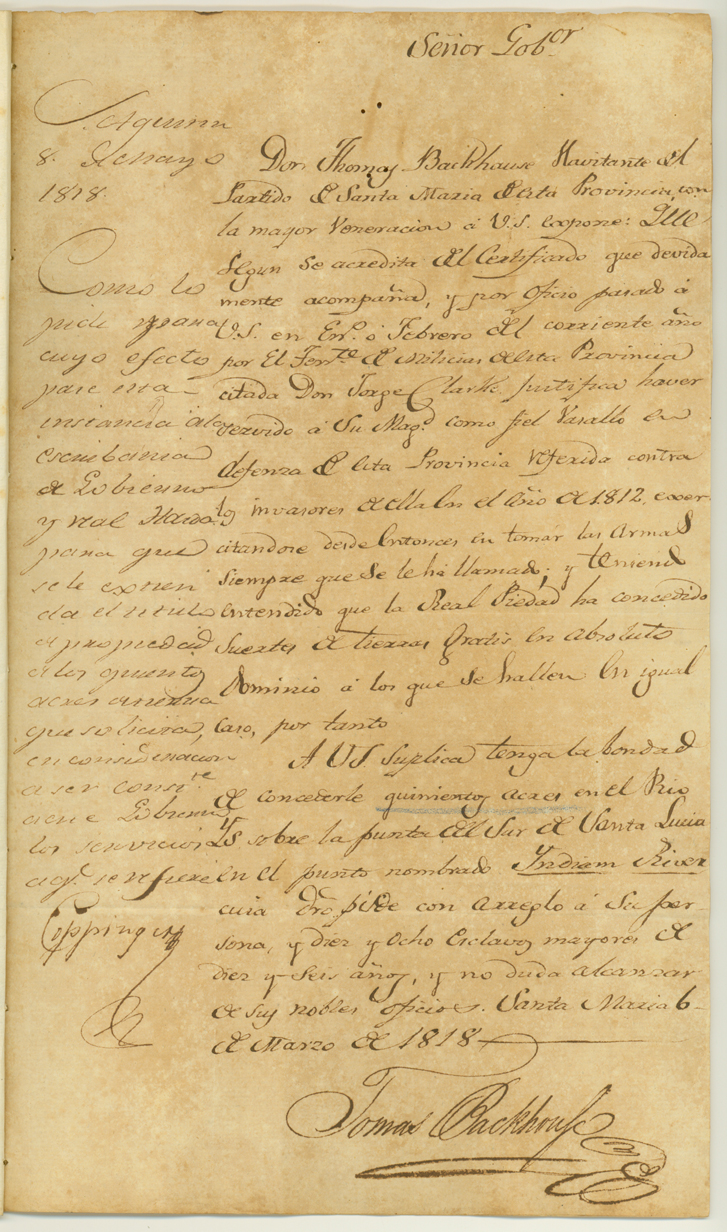 Señor Gob.or
Sn Agustin
8. de mayo
1818.
Como lo
pide para
cuyo efecto
pase esta
instancia a la
escribania
de Gobierno
y real Hacida
para que
se le extien
da el titulo
de propiedad
de los quientos
acres
que solicita,
en consideracion
a ser const.te
a este Gobierno
los servicios
a q.e se refiere
Coppinger
Don Thomas Backhouse Havitante del
Partido de Santa Maria de esta Provincia, con
la mayor Veneracion á V.S. expone: Que
segun se acredita del Certificado que devida
mente acompaña, y por oficio pasado á
V.S. en En.o ó Febrero del corriente año
por El Ten.te de Milicias de esta Provincia
citada Don Jorge Clarke justifica haver
servido á Su Mag.d como fiel Vasallo en
defenza de esta Provincia referida contra
los invasores de ella en el Año de 1812, exer-
citandose desde entonces en tomar las Armas
siempre que se le ha llamado; y teniend
entendido que la Real Piedad ha concedido
Suertes de tierras Gratis en absoluto
Dominio á los que se hallen en igual
Caso, por tanto
A VS Suplica tenga la bondad
de concederle quinientos acres en el Rio
Ys sobre la punta del Sur de Santa Lucia
en el punto nombrado Indian River
cuia dro pide con arreglo á Su per-
sona, y diez y ocho Esclavos mayores de
diez y Seis años, y no duda alcanzar
de sus nobles oficios. Santa Maria 6-
de Marzo de 1818
Tomas Backhouse